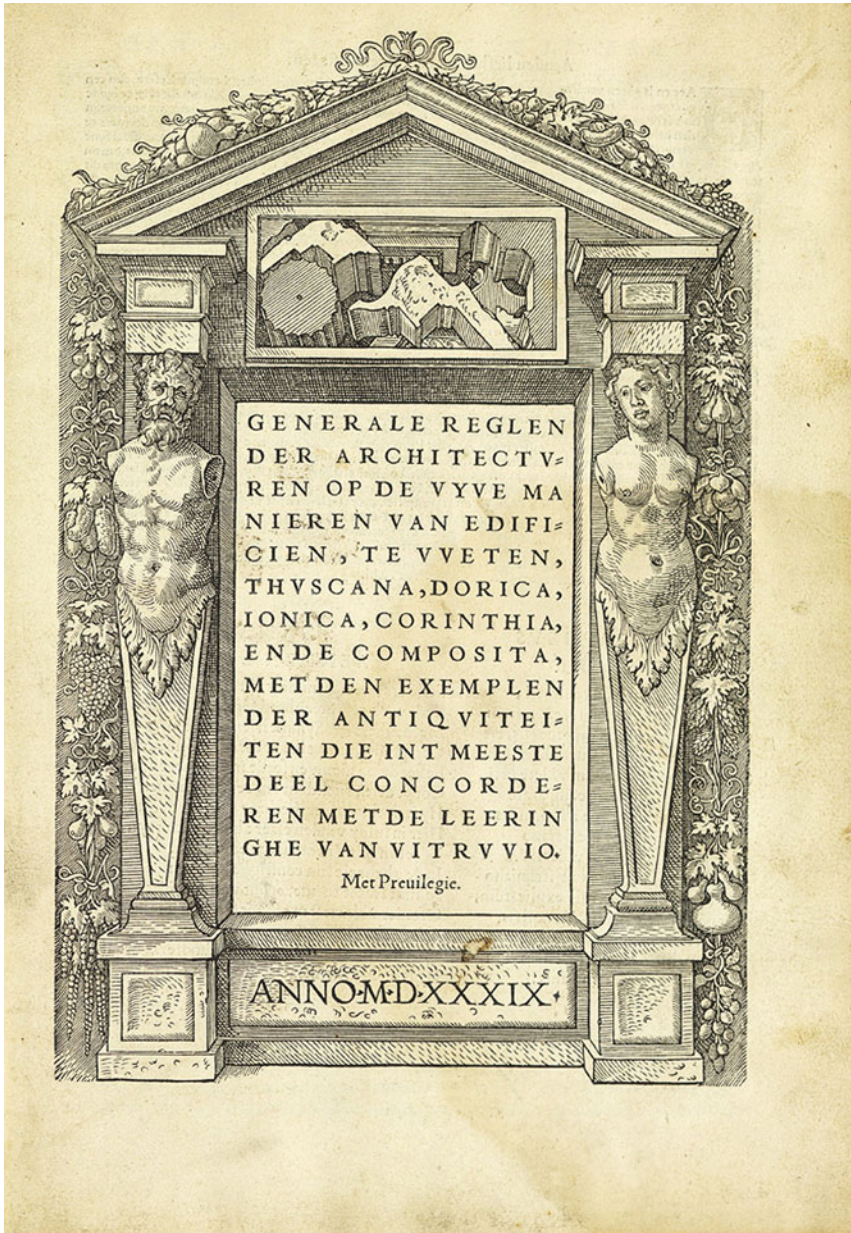 GENERALE REGLEN
DER ARCHITECTV=
REN OP DE VYVE MA
NIEREN VAN EDIFI=
CIEN, TE VVETEN,
THVSCANA, DORICA,
IONICA, CORINTHIA,
ENDE COMPOSITA,
MET DEN EXEMPLEN
DER ANTIQVITEI=
TEN DIE INT MEESTE
DEEL CONCORDE=
REN METDE LEERIN
GHE VAN VITRVVIO.
Met Preuilegie.
ANNO·M·D·XXXIX·